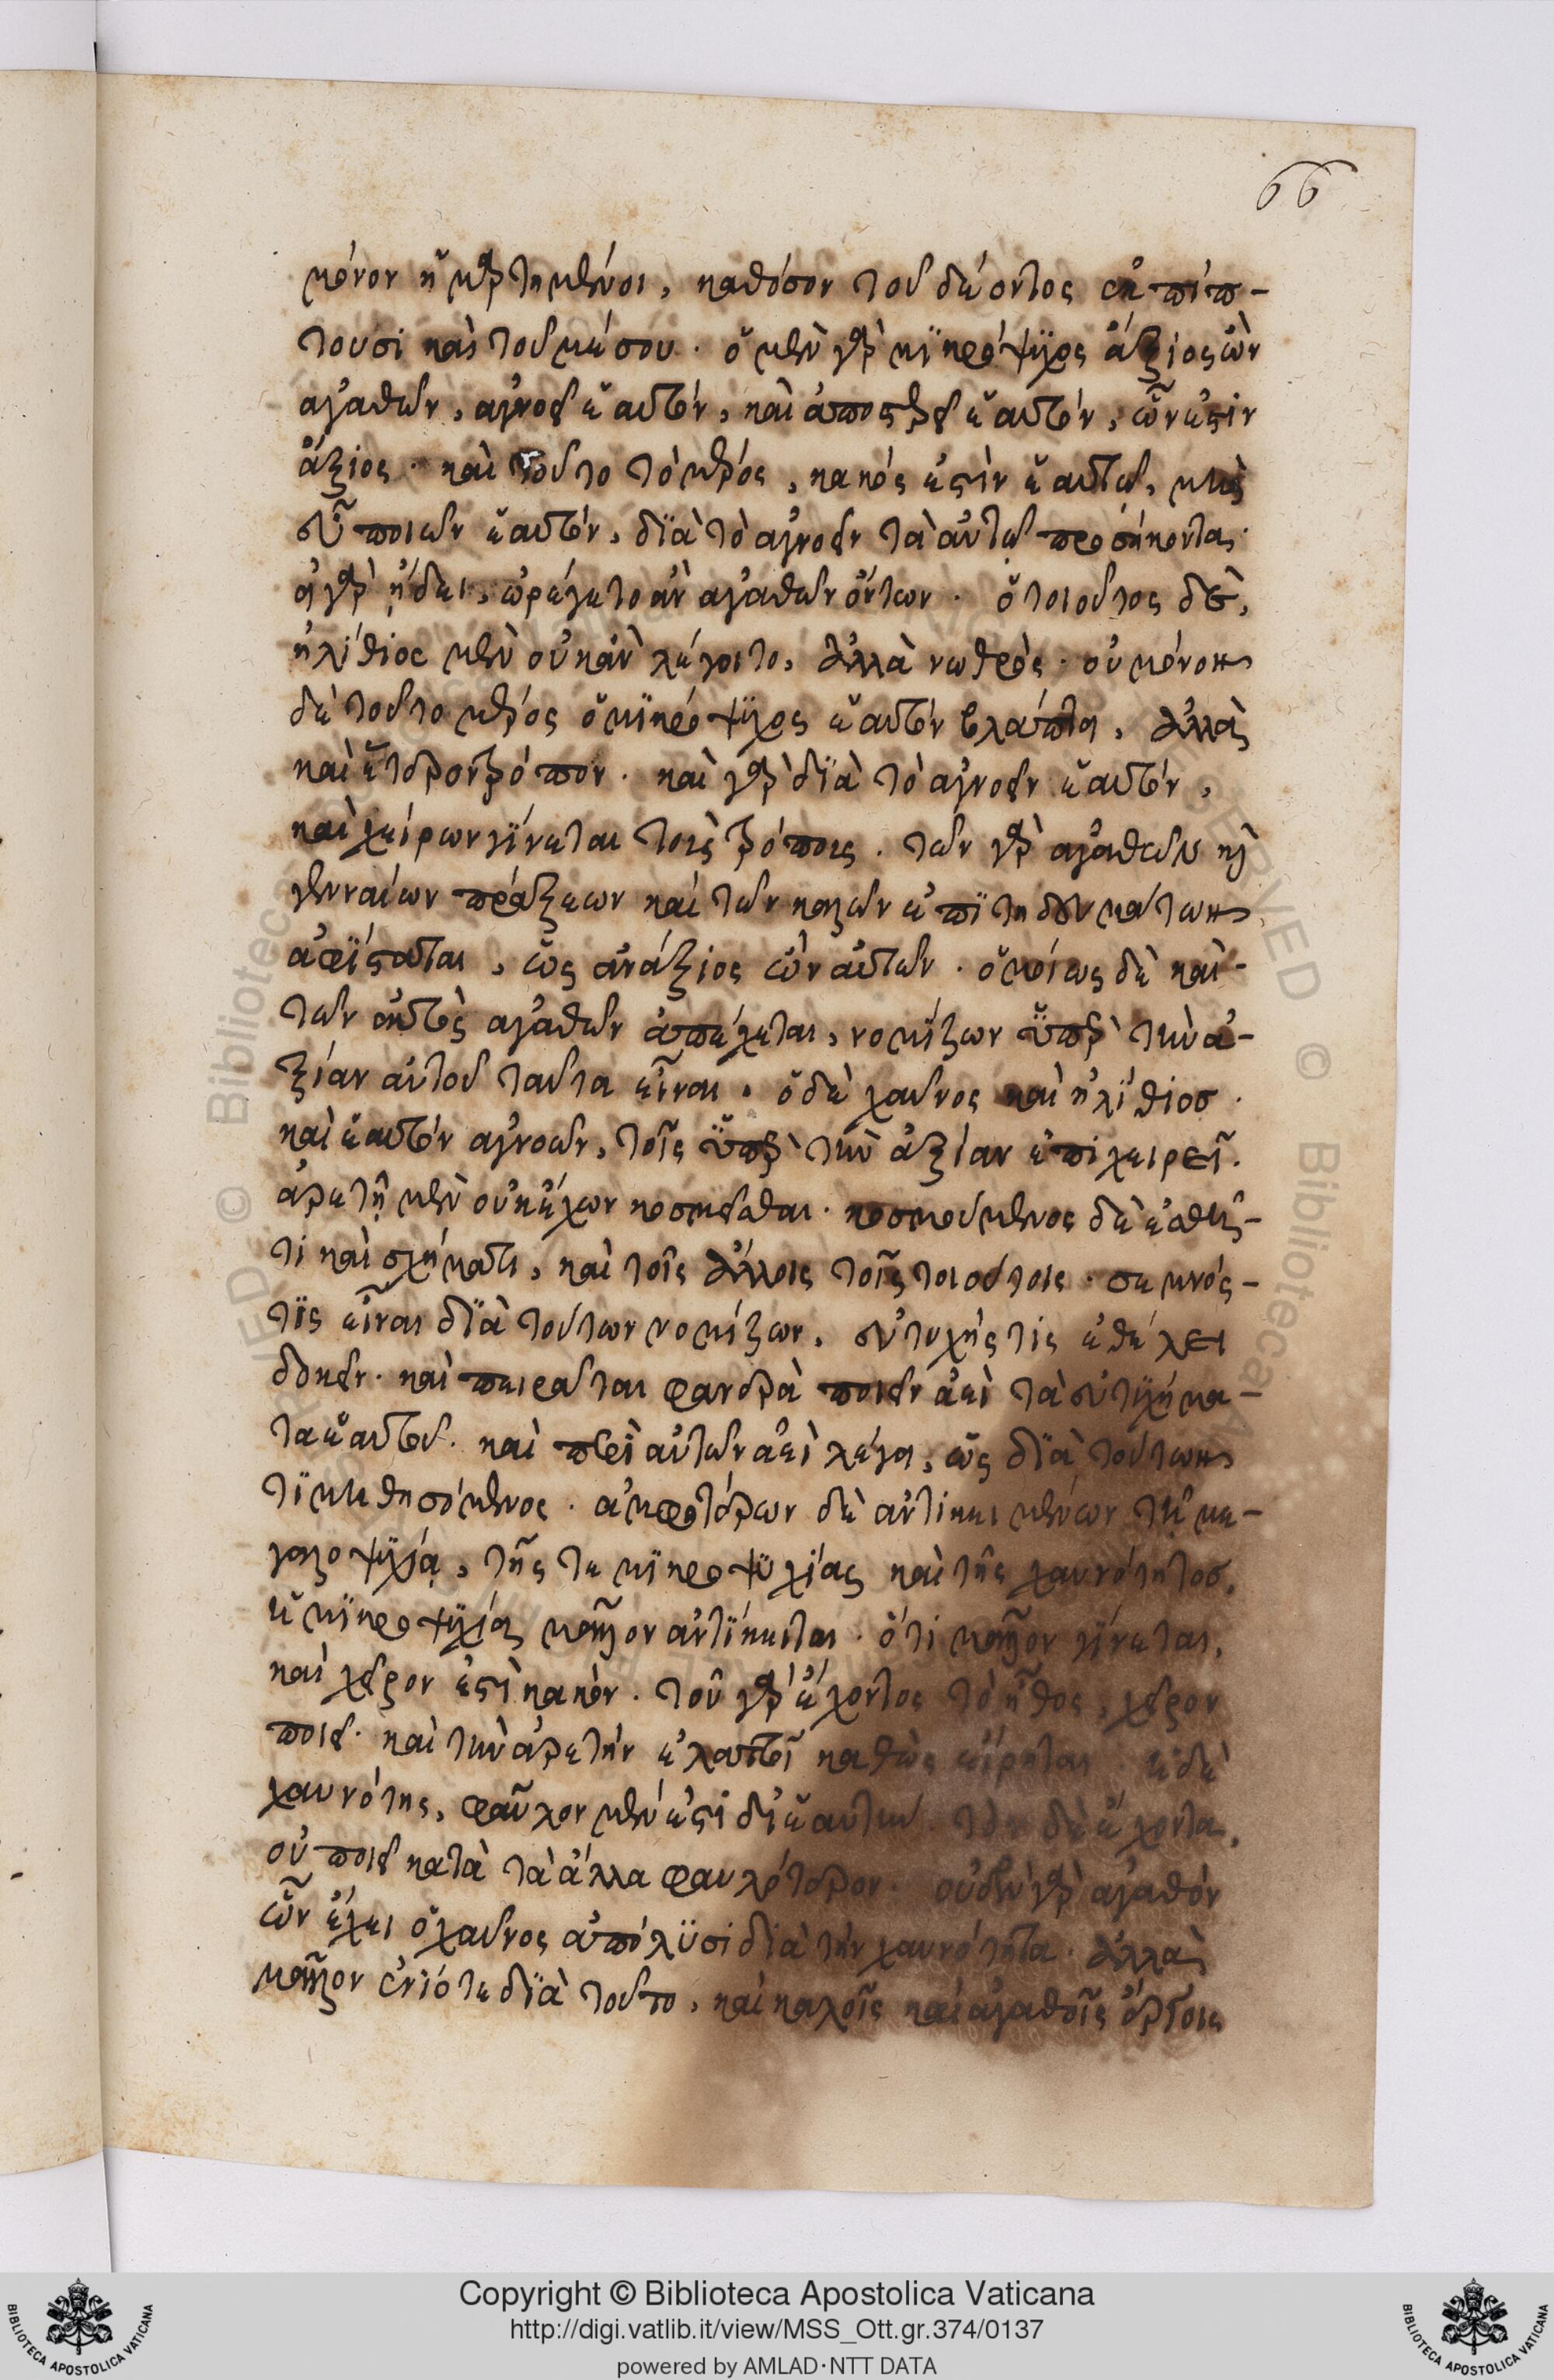 66
μόνον ἡμαρτημένοι, καθόσον τοῦ δέοντος ἐκπίπ-
τουσι καὶ τοῦ μέσου. ὁ μὲν γὰρ μικρόψυχος ἄξιος ὢν
ἀγαθῶν, ἀγνοεῖ ἑαυτόν, καὶ ἀποστερεῖ ἑαυτόν, ὧν ἐστιν
ἄξιος. καὶ τοῦτο τὸ μέρος, κακός ἐστὶν ἑαυτῷ, μὴ
εὖ ποιῶν ἑαυτόν, διὰ τὸ ἀγνοεῖν τὰ αὐτῷ προσήκοντα.
εἰ γὰρ ᾔδει, ὠρέγετο ἂν ἀγαθῶν ὄντων. ὁ τοιοῦτος δὲ,
ἠλίθιος μὲν οὐκ ἂν λέγοιτο, ἀλλὰ νωθρός. οὐ μόνον
δὲ τοῦτο μέρος ὁ μικρόψυχος ἑαυτόν βλάπτει, ἀλλὰ
καὶ ἕτερον τρόπον. καὶ γὰρ διὰ τὸ ἀγνοεῖν ἑαυτόν,
καὶ χείρων γίνεται τοῖς τρόποις. τῶν γὰρ ἀγαθῶν καὶ
γενναίων πράξεων καὶ τῶν καλῶν ἐπιτηδευμάτων
ἀφίσταται, ὡς ἀνάξιος ὢν αὐτῶν. ὁμοίως δὲ καὶ
τῶν ἐκτὸς ἀγαθῶν ἀπέχεται, νομίζων ὑπὲρ τὴν ἀ-
ξίαν αὐτοῦ ταῦτα εἶναι. ὁ δὲ χαῦνος καὶ ἠλίθιος.
καὶ ἑαυτόν ἀγνοῶν, τοῖς ὑπὲρ τὴν ἀξίαν ἐπιχειρεῖ.
ἀρετῇ μὲν οὐκ ἔχων κοσμεῖσθαι. κοσμούμενος δὲ ἐσθῆ-
τι καὶ σχήματι, καὶ τοῖς ἄλλοις τοῖς τοιούτοις. σεμνός
τις εἶναι διὰ τούτων νομίζων, εὐτυχής τις ἐθέλει
δοκεῖν. καὶ πειρᾶται φανερὰ ποιεῖν ἀεὶ τὰ εὐτυχήμα-
τα ἑαυτοῦ. καὶ περὶ αὐτῶν ἀεὶ λέγει, ὡς διὰ τούτων
τιμηθησόμενος. ἀμφοτέρων δὲ ἀντικειμένων τῇ με-
γαλοψυχίᾳ, τῆς τε μικροψυχίας καὶ τῆς χαυνότητος.
ἡ μικροψυχία μᾶλλον ἀντίκειται. ὅτι μᾶλλον γίνεται,
καὶ χεῖρον ἐστὶ κακόν. τοῦ γὰρ ἔχοντος τὸ ἦθος, χεῖρον
ποιεῖ. καὶ τὴν ἀρετήν ἐλαττοῖ καθὼς εἴρηται. ἡ δὲ
χαυνότης, φαῦλον μέν ἐστι δι' ἑαυτήν. τὸν δὲ ἔχοντα,
οὐ ποιεῖ κατὰ τὰ ἄλλα φαυλότερον. οὐδὲν γὰρ ἀγαθόν
ὧν ἔχει ὁ χαῦνος ἀπόλλυσι διὰ τὴν χαυνότητα. ἀλλὰ
μᾶλλον ἐνίοτε διὰ τοῦτο, καὶ καλοῖς καὶ ἀγαθοῖς
Copyright © Biblioteca Apostolica Vaticana
http://digi.vatlib.it/view/MSS_Ott.gr.374/0137
powered by AMLAD·NTT DATA
BIBLIOTECA APOSTOLICA VATICANA
BIBLIOTECA APOSTOLICA VATICANA